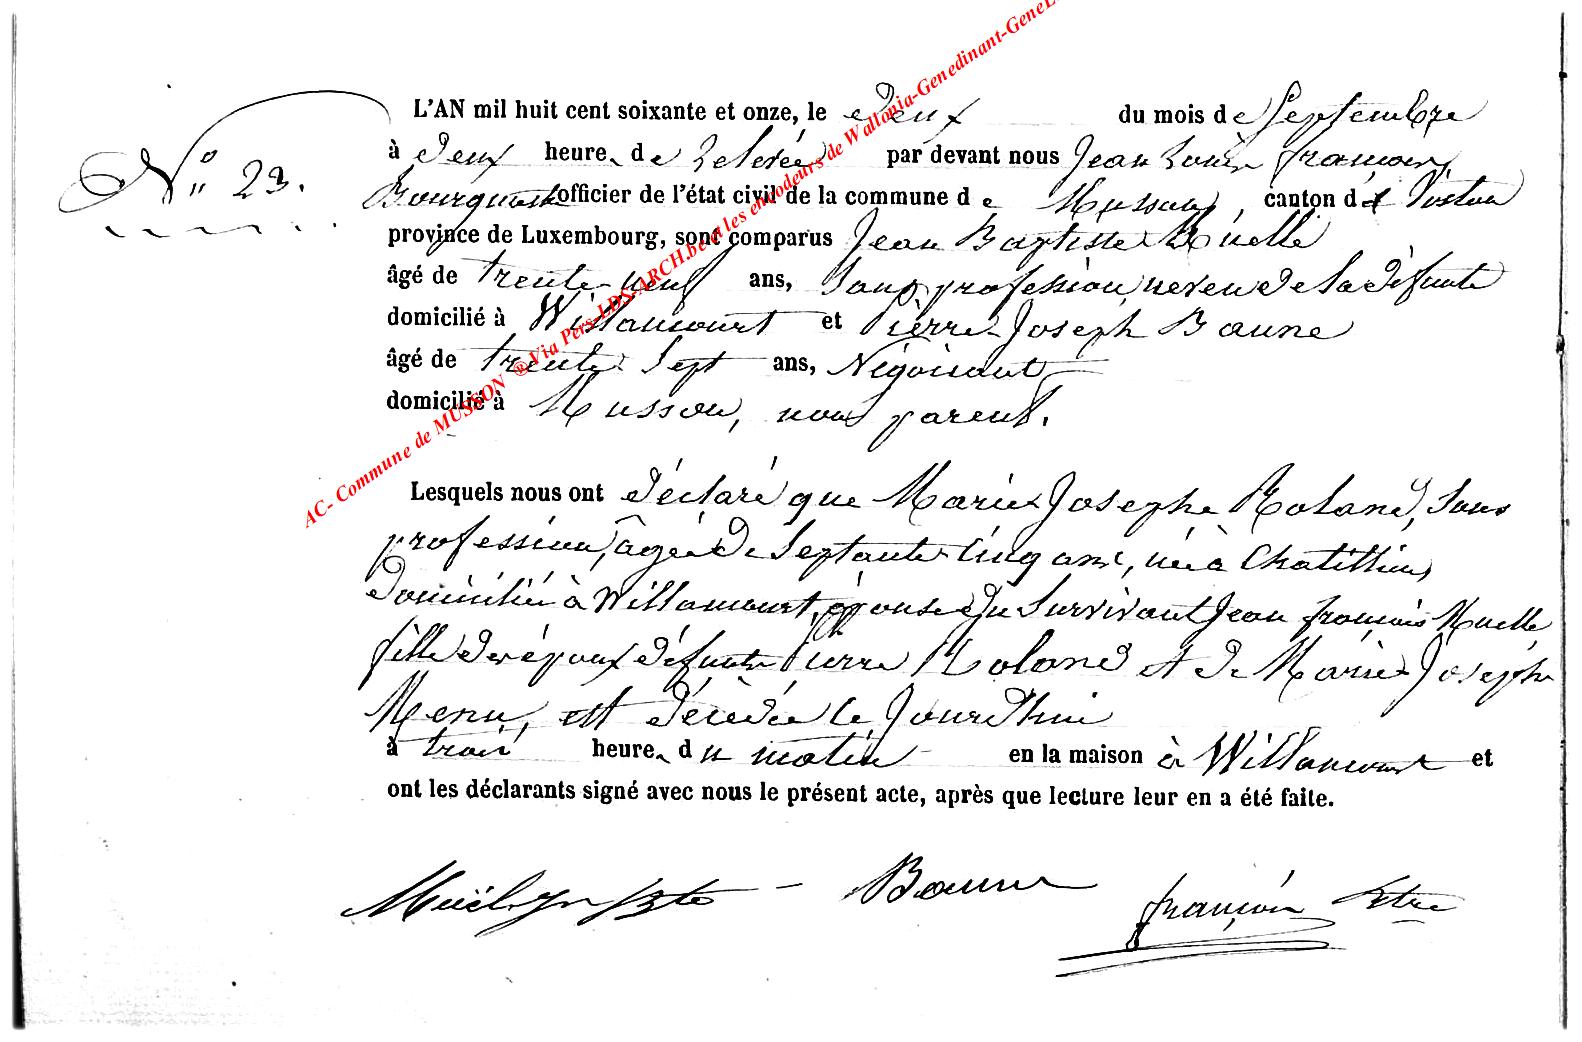 L'AN mil huit cent soixante et onze, le deux du mois de Septembre
N° 23.
à deux heures de relevée par devant nous Jean Louis françois
officier de l'état civil de la commune de Musson, canton de Virton
province de Luxembourg, sont comparus Jean Baptiste
âgé de trente neuf ans, sans profession, neveu de la défunte
domicilié à Willancourt et Pierre Joseph Baune
âgé de trente Sept ans, Négociant
domicilié à Musson, non parent.
AC- Commune de MUSSON ®Via Pers-LDS-ARCH.be et les encodeurs de Wallonia-Genedinant-GeneL
Lesquels nous ont déclaré que Marie Josephe Roland, Sans
profession, âgée de Septante Cinq ans, née à Chatillion,
domiciliée à Willancourt, épouse du Survivant Jean françois
fille des époux défunts Pierre Roland et de Marie Joseph
Menu, est décédée le Jourdhui
à trois heures du matin en la maison à Willancourt et
ont les déclarants signé avec nous le présent acte, après que lecture leur en a été faite.
Baune
françois